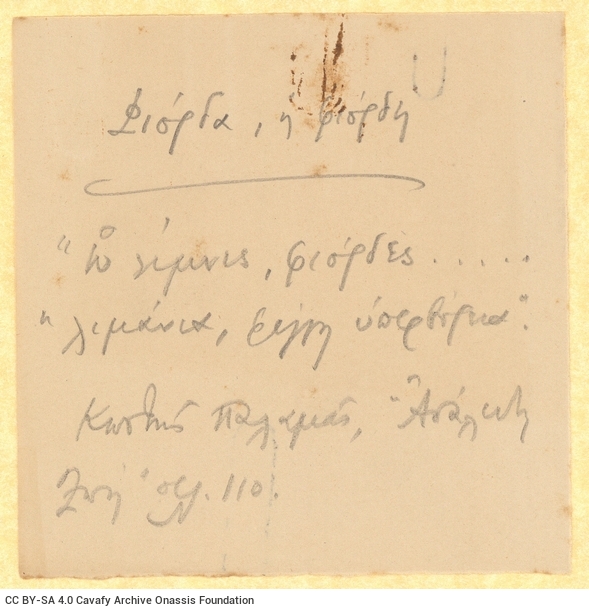 Φιόρδα, ή φιόρδη
"Ὦ λίμνες, φιόρδες.....
"λιμάνια, φέγγη ὑπερβόρεια".
Κωστῆς Παλαμᾶς, "Ἀσάλευτη
Ζωή" σελ. 110.
CC BY-SA 4.0 Cavafy Archive Onassis Foundation